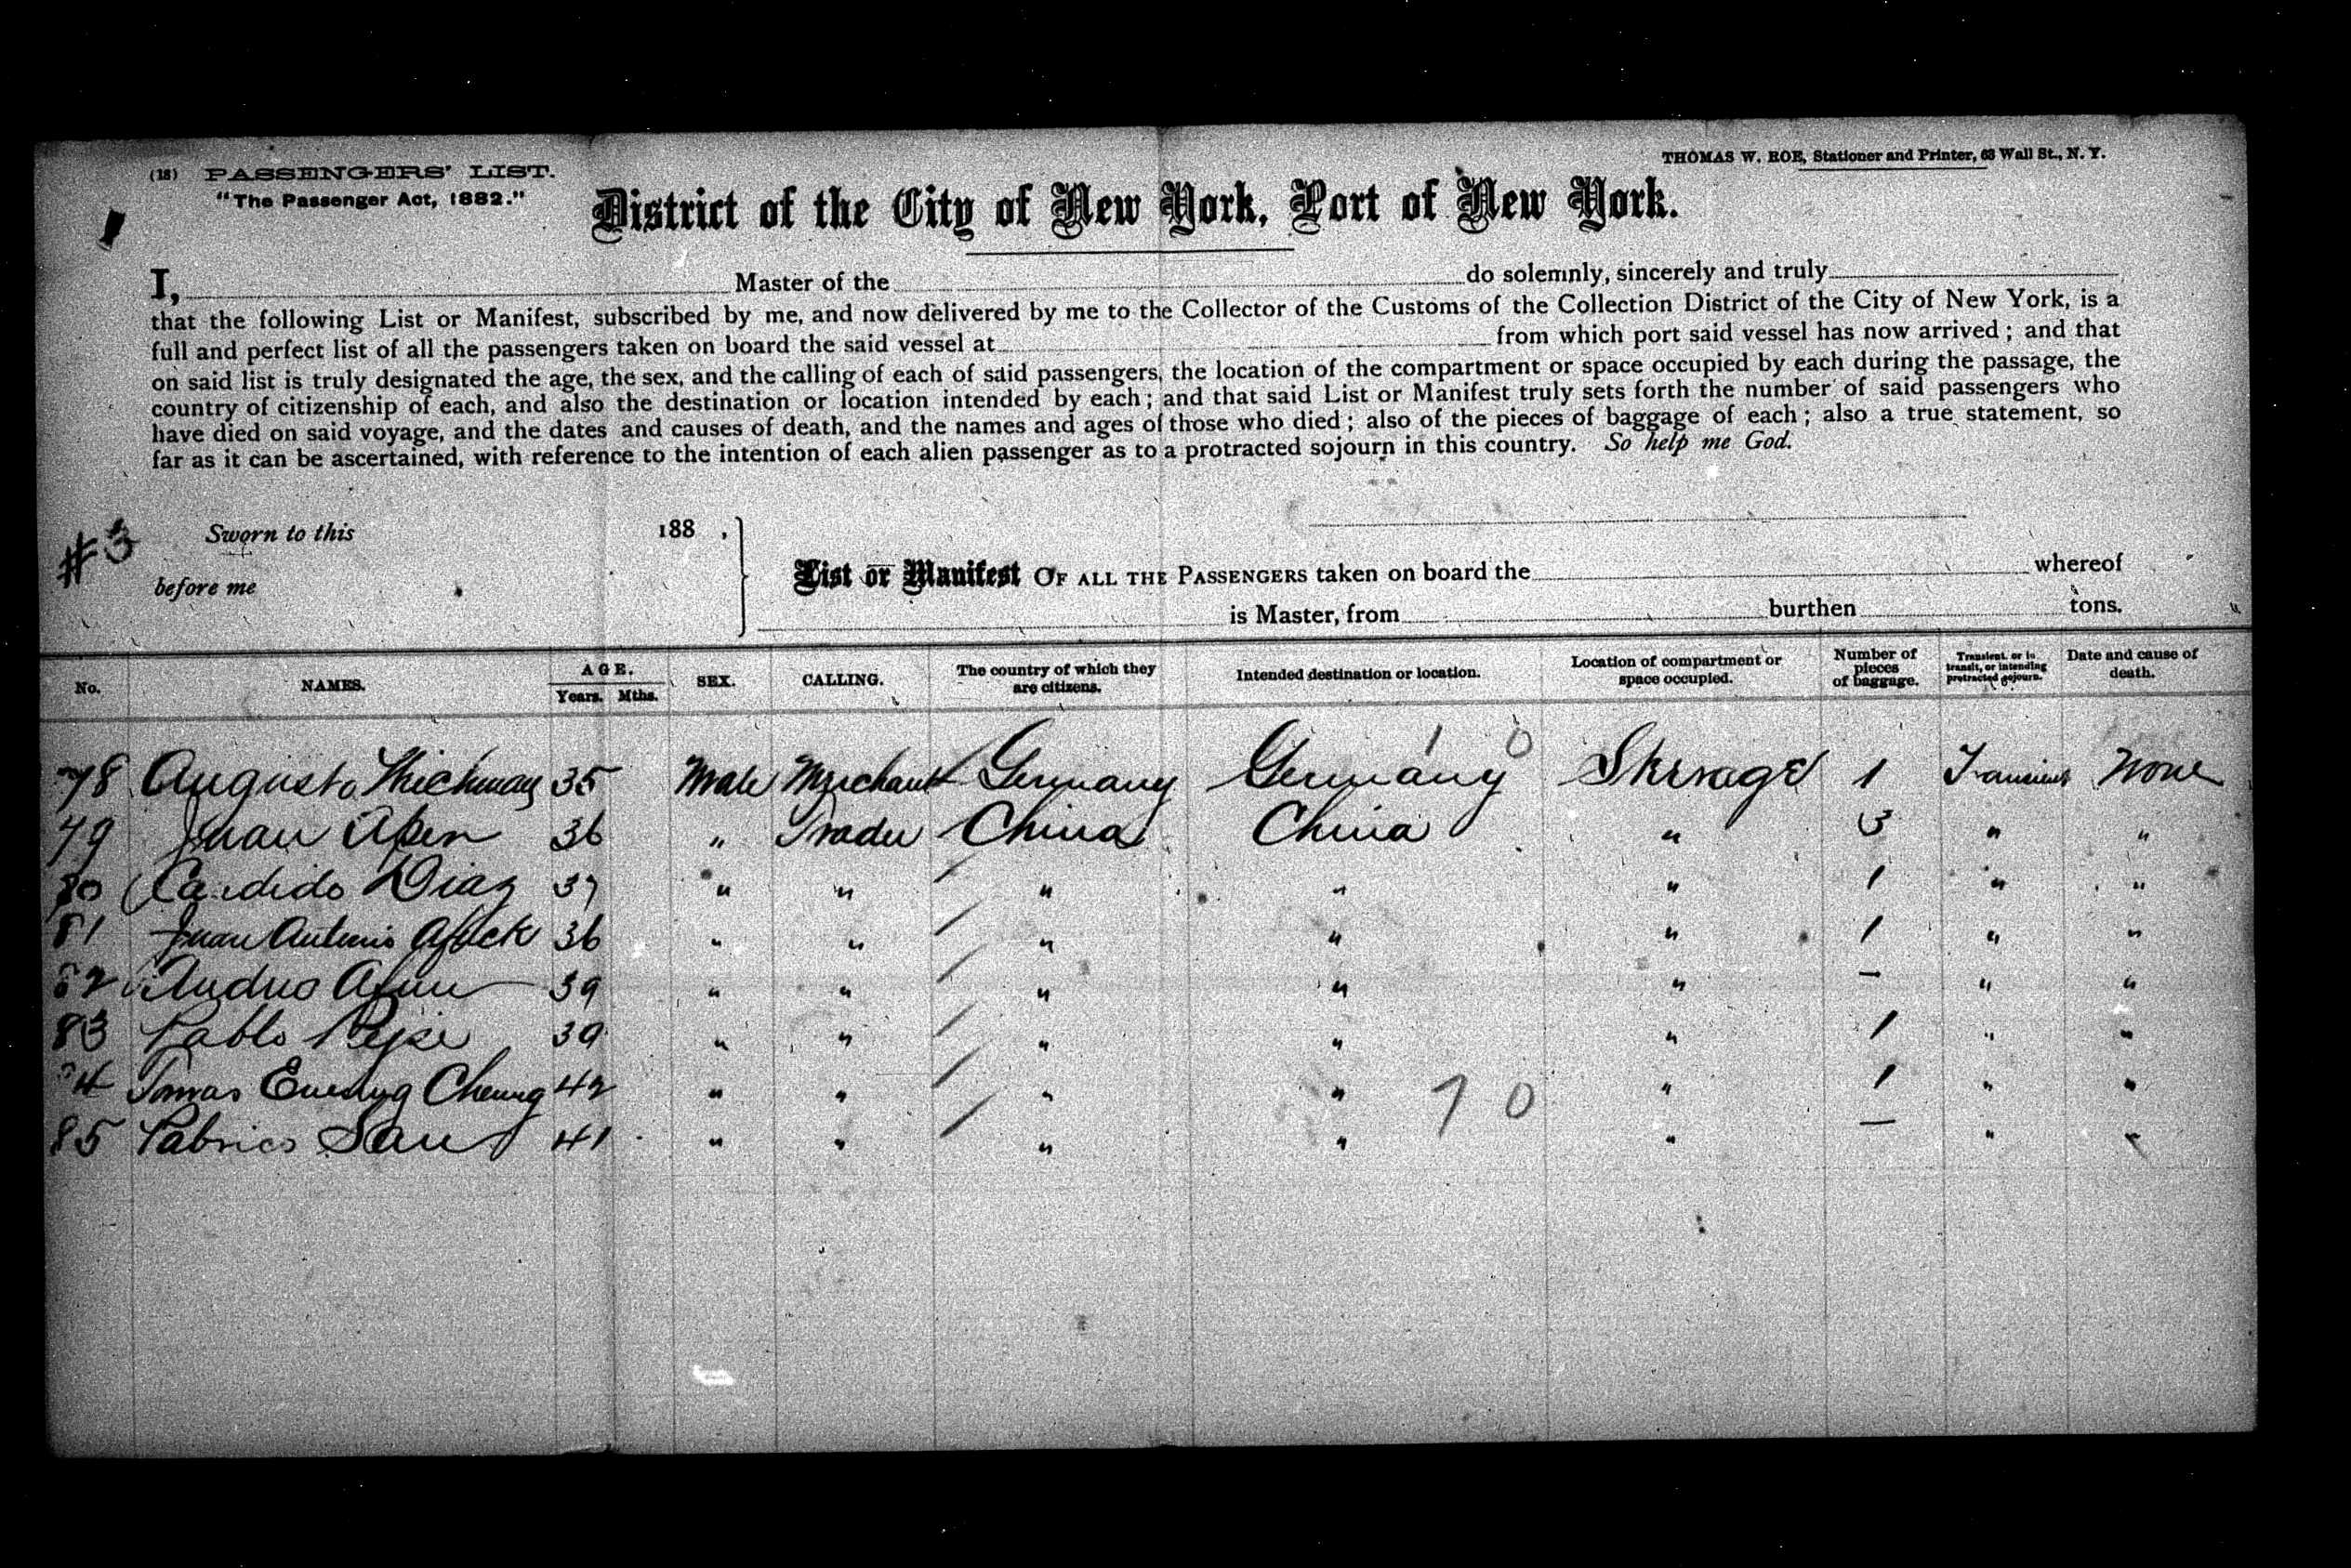 (18) PASSENGERS' LIST.
"The Passenger Act, 1882."
THOMAS W. ROE, Stationer and Printer, 63 Wall St., N. Y.
District of the City of New York, Port of New York.
I, Master of the do solemnly, sincerely and truly
that the following List or Manifest, subscribed by me, and now delivered by me to the Collector of the Customs of the Collection District of the City of New York, is a
full and perfect list of all the passengers taken on board the said vessel at from which port said vessel has now arrived; and that
on said list is truly designated the age, the sex, and the calling of each of said passengers, the location of the compartment or space occupied by each during the passage, the
country of citizenship of each, and also the destination or location intended by each; and that said List or Manifest truly sets forth the number of said passengers who
have died on said voyage, and the dates and causes of death, and the names and ages of those who died; also of the pieces of baggage of each; also a true statement, so
far as it can be ascertained, with reference to the intention of each alien passenger as to a protracted sojourn in this country. So help me God.
#3
Sworn to this 188 ,
before me
List or Manifest OF ALL THE PASSENGERS taken on board the whereof
is Master, from burthen tons.
No. NAMES. AGE. Years. Mths. SEX. CALLING. The country of which they are citizens. Intended destination or location. Location of compartment or space occupied. Number of pieces of baggage. Transient, or in transit, or intending protracted sojourn. Date and cause of death.
1 0
78 Augusto 35 Male Merchant Germany Germany 1 Transient None
79 Juan 36 " Trader China China " 3 " "
80 Candido Diaz 37 " " " " " 1 " "
81 Juan Antonio 36 " " " " " 1 " "
82 39 " " " " " – " "
83 Pablo 39 " " " " " 1 " "
84 Tomas Cheung 42 " " " " " 1 " "
7 0
85 41 " " " " " – " "